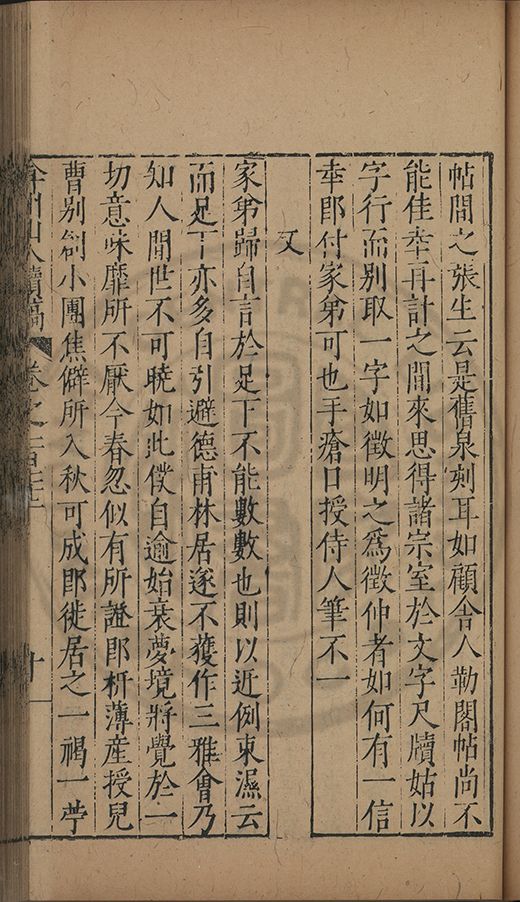 帖間之張生云是舊泉刻耳如顧舍人勒閣帖尚不
能佳幸再計之間來思得諸宗室於文字尺牘姑以
字行而別取一字如徵明之為徵仲者如何有一信
幸即付家弟可也手瘡口授侍人筆不一
又
家弟歸自言於足下不能數數也則以近例東濕云
而足下亦多自引避德甫林居遂不獲作三雅會乃
知人間世不可曉如此僕自逾始衰夢境將覺於一
切意味靡所不厭今春忽似有所證即析薄產授兒
曹別創小團焦僻所入秋可成即徙居之一褐一苧
弇州山人續稿 卷之
十一